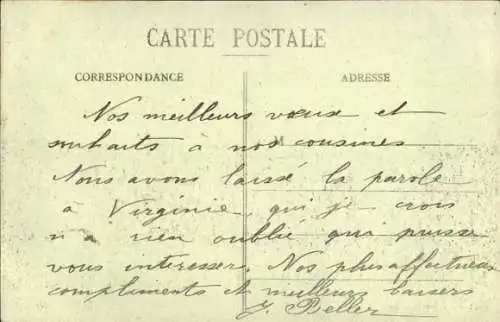 CARTE POSTALE
CORRESPONDANCE ADRESSE
Nos meilleurs vœux et
souhaits a nos cousines
Nous avons laissé la parole
a Virginie, qui je crois
n'a rien oublié qui puisse
vous interesser. Nos plus affectueux
compliments et meilleurs baisers
J. Beller